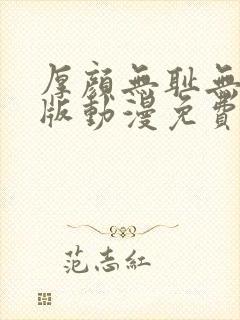 厚顏無耻無
版動漫免費
范志紅